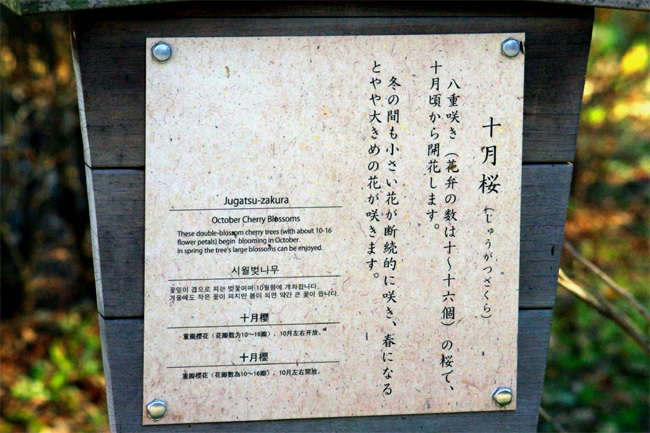 十月桜（じゅうがつざくら）
八重咲き（花弁の数は十～十六個）の桜で、
十月頃から開花します。
冬の間も小さい花が断続的に咲き、春になる
とやや大きめの花が咲きます。
Jugatsu-zakura
October Cherry Blossoms
These double-blossom cherry trees (with about 10-16
flower petals) begin blooming in October.
In spring the tree's large blossoms can be enjoyed.
시월벚나무
꽃잎이 겹으로 피는 벚꽃이며 10월쯤에 개화합니다.
겨울에도 작은 꽃이 피지만 봄이 되면 약간 큰 꽃이 핍니다.
十月櫻
重瓣櫻花（花瓣数为10～16圈），10月左右开放。
十月櫻
重瓣櫻花（花瓣數為10～16圈），10月左右開放。